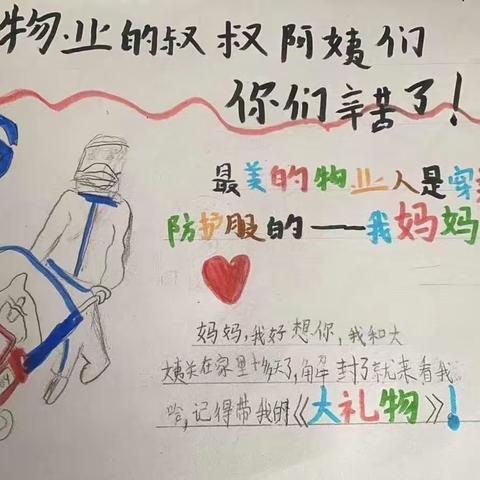 物业的叔叔阿姨们
你们辛苦了！
最美的物业人是穿
防护服的——我妈妈
妈妈，我好想你，我和大
大姨关在家里十多天了，解封了就来看我
哈，记得带我的《大礼物》！